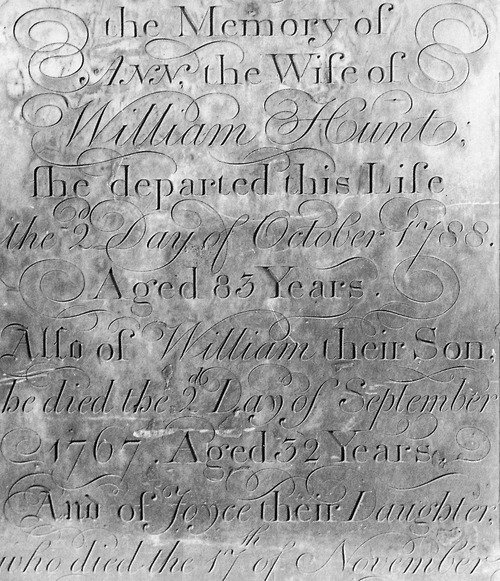 the Memory of
ANN, the Wife of
William Hunt;
ſhe departed this Life
the 2 Day of October 1788.
Aged 83 Years.
Alſo of William their Son,
he died the 2d Day of September
1767. Aged 32 Years.
And of Joyce their Daughter,
who died the 17th of November